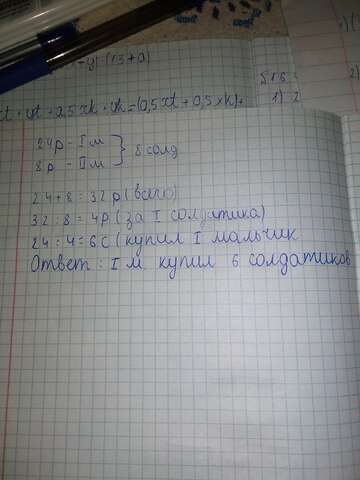 -y) (13+a)
xt + yt + 0,5xk + yk = (0,5xt + 0,5xk)+
516
1) 2
24р - I м
8р - II м } 8 солд
24+8=32р (всего)
32:8=4р (за I солдатика)
24:4=6с (купил I мальчик
Ответ: I м. купил 6 солдатиков